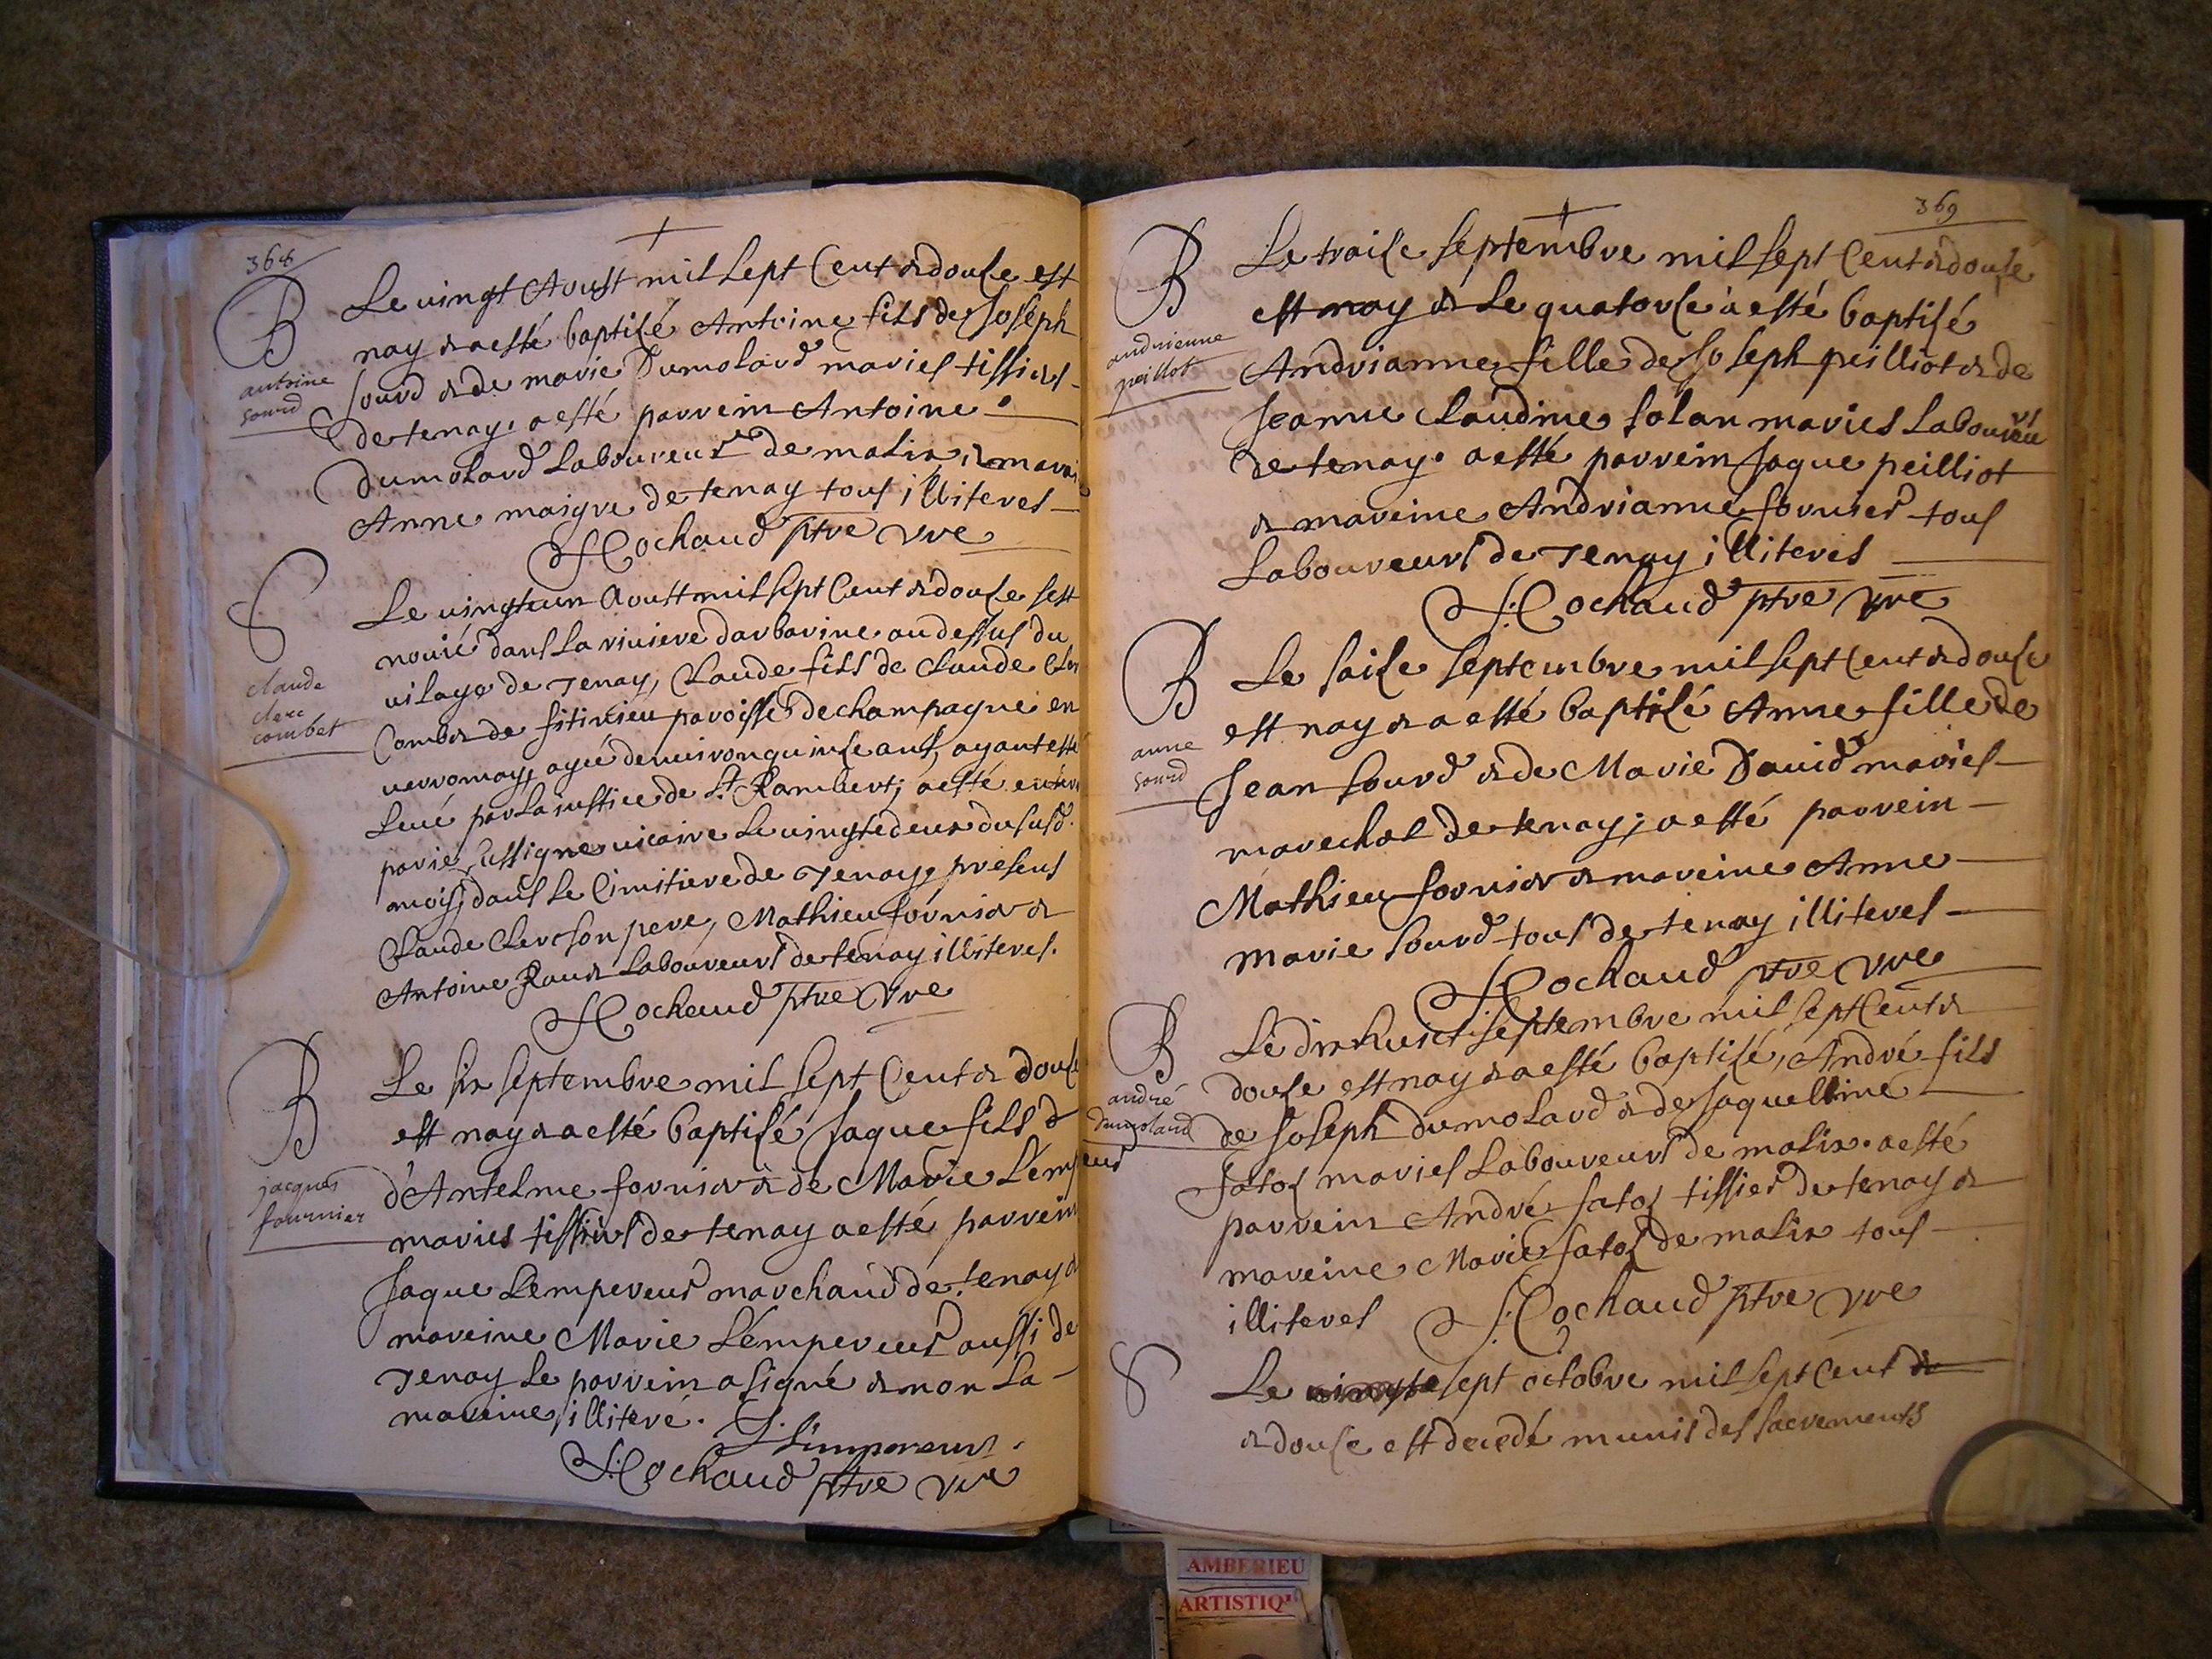 368
B
Le vingt Aoust mil sept Cent & douse est
nay & a esté baptisé Antoine fils de Joseph
antoine
sourd
sourd & de marie Dumolard mariés tissiers
de tenay. a esté parrein Antoine
dumolard Laboureur de malix, & marei
Anne maigre de tenay tous illiteres
F: Cochaud ptre vre
S
Le vingteun Aoust mil sept Cent & douse sest
noüié dans La riviere darbarine au dessus du
claude
clerc
combet
vilage de Tenay, Claude fils de Claude Cler
Combet de sitinieu paroisse de champagne en
verromay, agé denviron quinse ans, ayant esté
Levé par La iustice de St Rambert; a esté enterr
par ie sussigne vicaire Le vingtedeux du susd.
mois; dans Le Cimitiere de Tenay, presens
Claude Clerc son pere, Mathieu fornier &
Antoine Raux Laboureurs de tenay illiteres.
F: Cochaud ptre vre
B
Le six septembre mil sept Cent & douse
est nay & a esté baptisé Jaque fils d
jacques
fournier
d'Antelme fornier & de Marie L'empereur
mariés tissiers de tenay a esté parrein
Jaque Lempereur marchand de tenay &
mareine Marie L'empereur aussi de
Tenay Le parrein a signé & non La
mareine, illiteré.
J. Limpereur.
F: Cochaud ptre vre
369
B
Le traise septembre mil sept Cent & douse
est nay & Le quatorse a esté baptisé
andrienne
peillot
Andrianne fille de Joseph peilliot & de
Jeanne Claudine solan mariés Laboureurs
de tenay. a esté parrein Jaque peilliot
& mareine Andrianne fornier tous
Laboureurs de Tenay illiterés
F: Cochaud ptre vre
B
Le saise septembre mil sept Cent & douse
est nay & a esté baptisé Anne fille de
anne
sourd
Jean sourd & de Marie David mariés
marechal de tenay; a esté parrein
Mathieu fornier & mareine Anne
Marie sourd tous de tenay illiteres
F: Cochaud ptre vre
B
Le dixhuict septembre mil sept Cent &
douse est nay & a esté baptisé, André fils
andré
dumolard
de Joseph dumolard & de Jaquelline
Jatos mariés Laboureurs de malix. a esté
parrein André Jatos tissier de tenay &
mareine Marie Jatos de malix tous
illiteres
F: Cochaud ptre vre
S
Le sept octobre mil sept Cent &
& douse est decedé munis des sacrements
AMBERIEU
ARTISTIQ